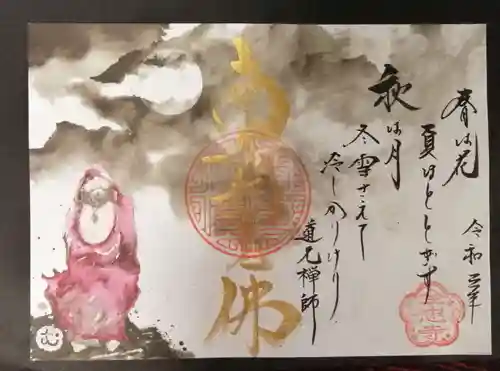 春は花
夏ほととぎす
秋は月
冬雪さえて
冷しかりけり
道元禅師
令和三年
南無
佛
む